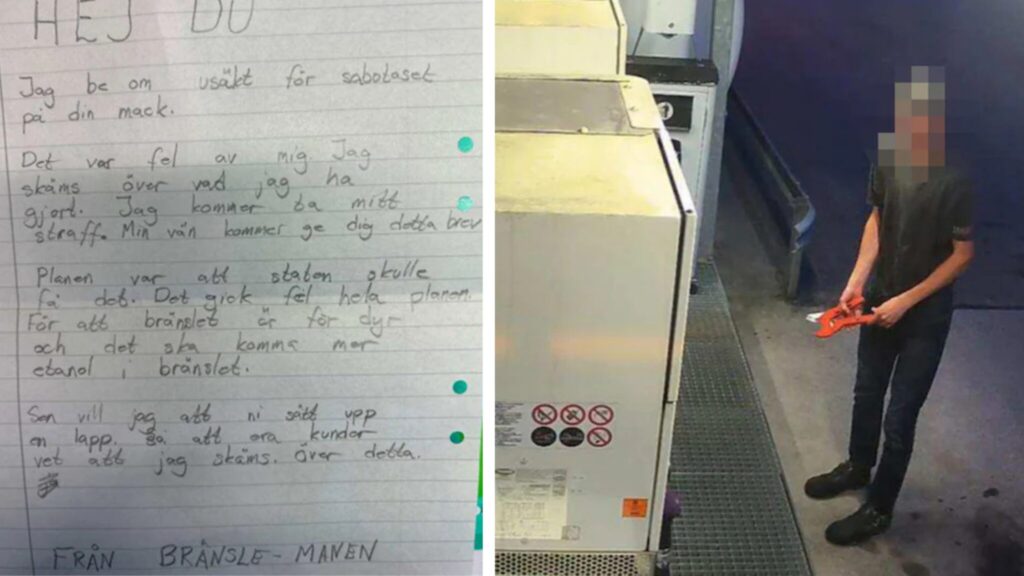 HEJ DU
Jag be om usäkt för sabotaset
på din mack.
Det var fel av mig Jag
skäms över vad jag ha
gjort. Jag kommer ta mitt
straff. Min vän kommer ge dig detta brev
Planen var att staten skulle
få det. Det gick fel hela planen.
För att bränslet är för dyr
och det ska komma mer
etanol i bränslet.
Sen vill jag att ni sätt upp
en lapp. så att era kunder
vet att jag skäms. över detta.
FRÅN BRÄNSLE-MANEN